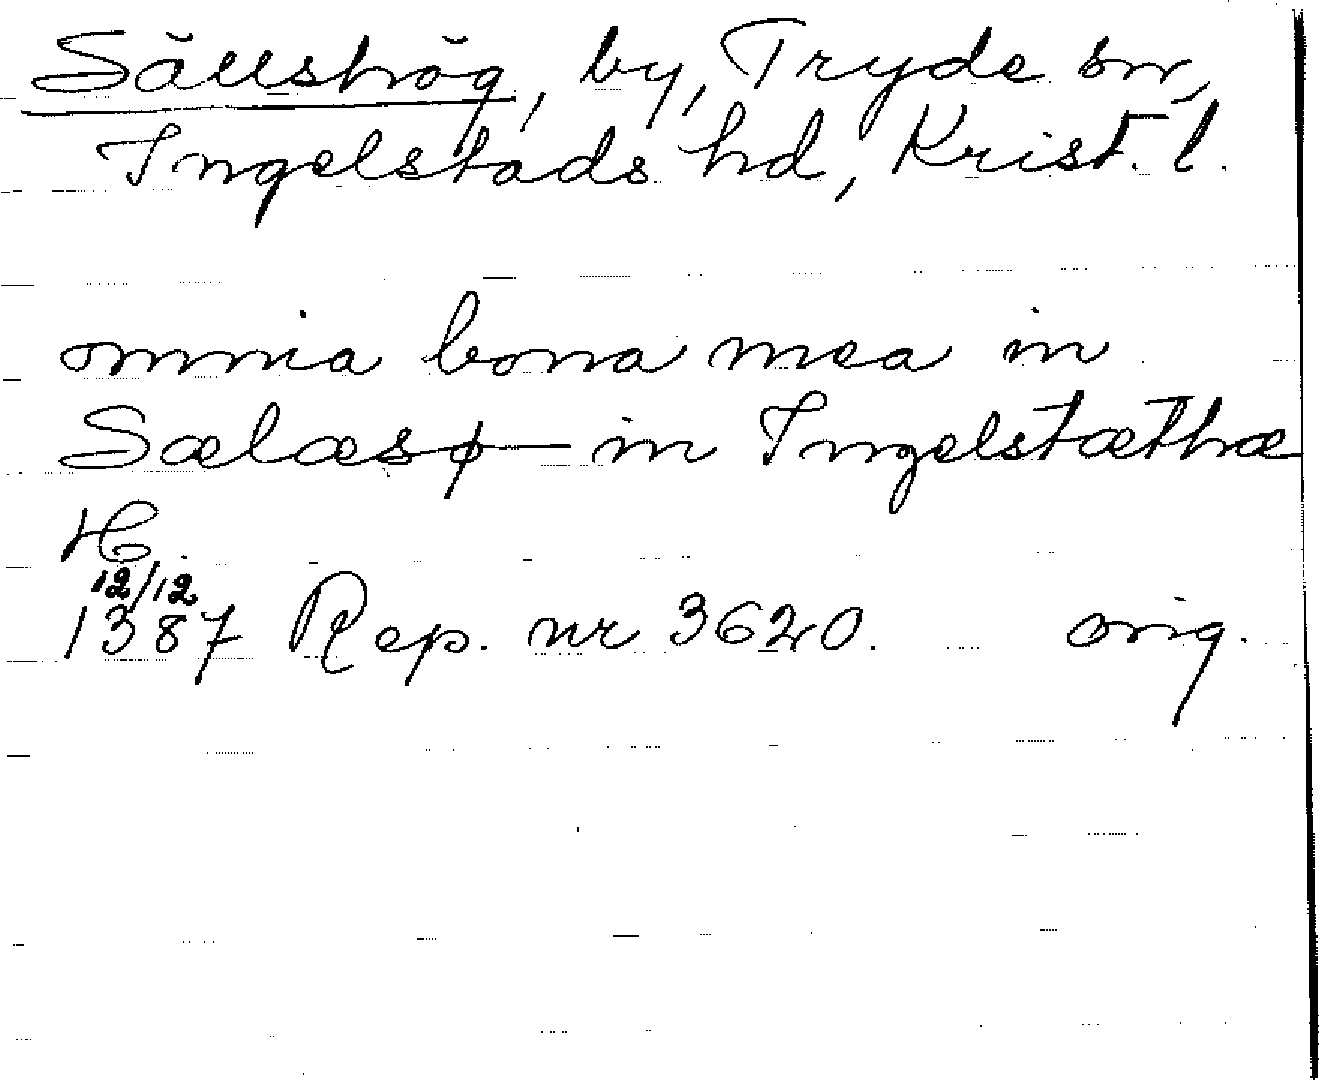 Sällshög, by, Tryde sn,
Ingelstads hd, Krist. l.
omnia bona mea in
Sælæsø in Ingelstæthæ
H
12/12
1387 Rep. nr 3620. orig.